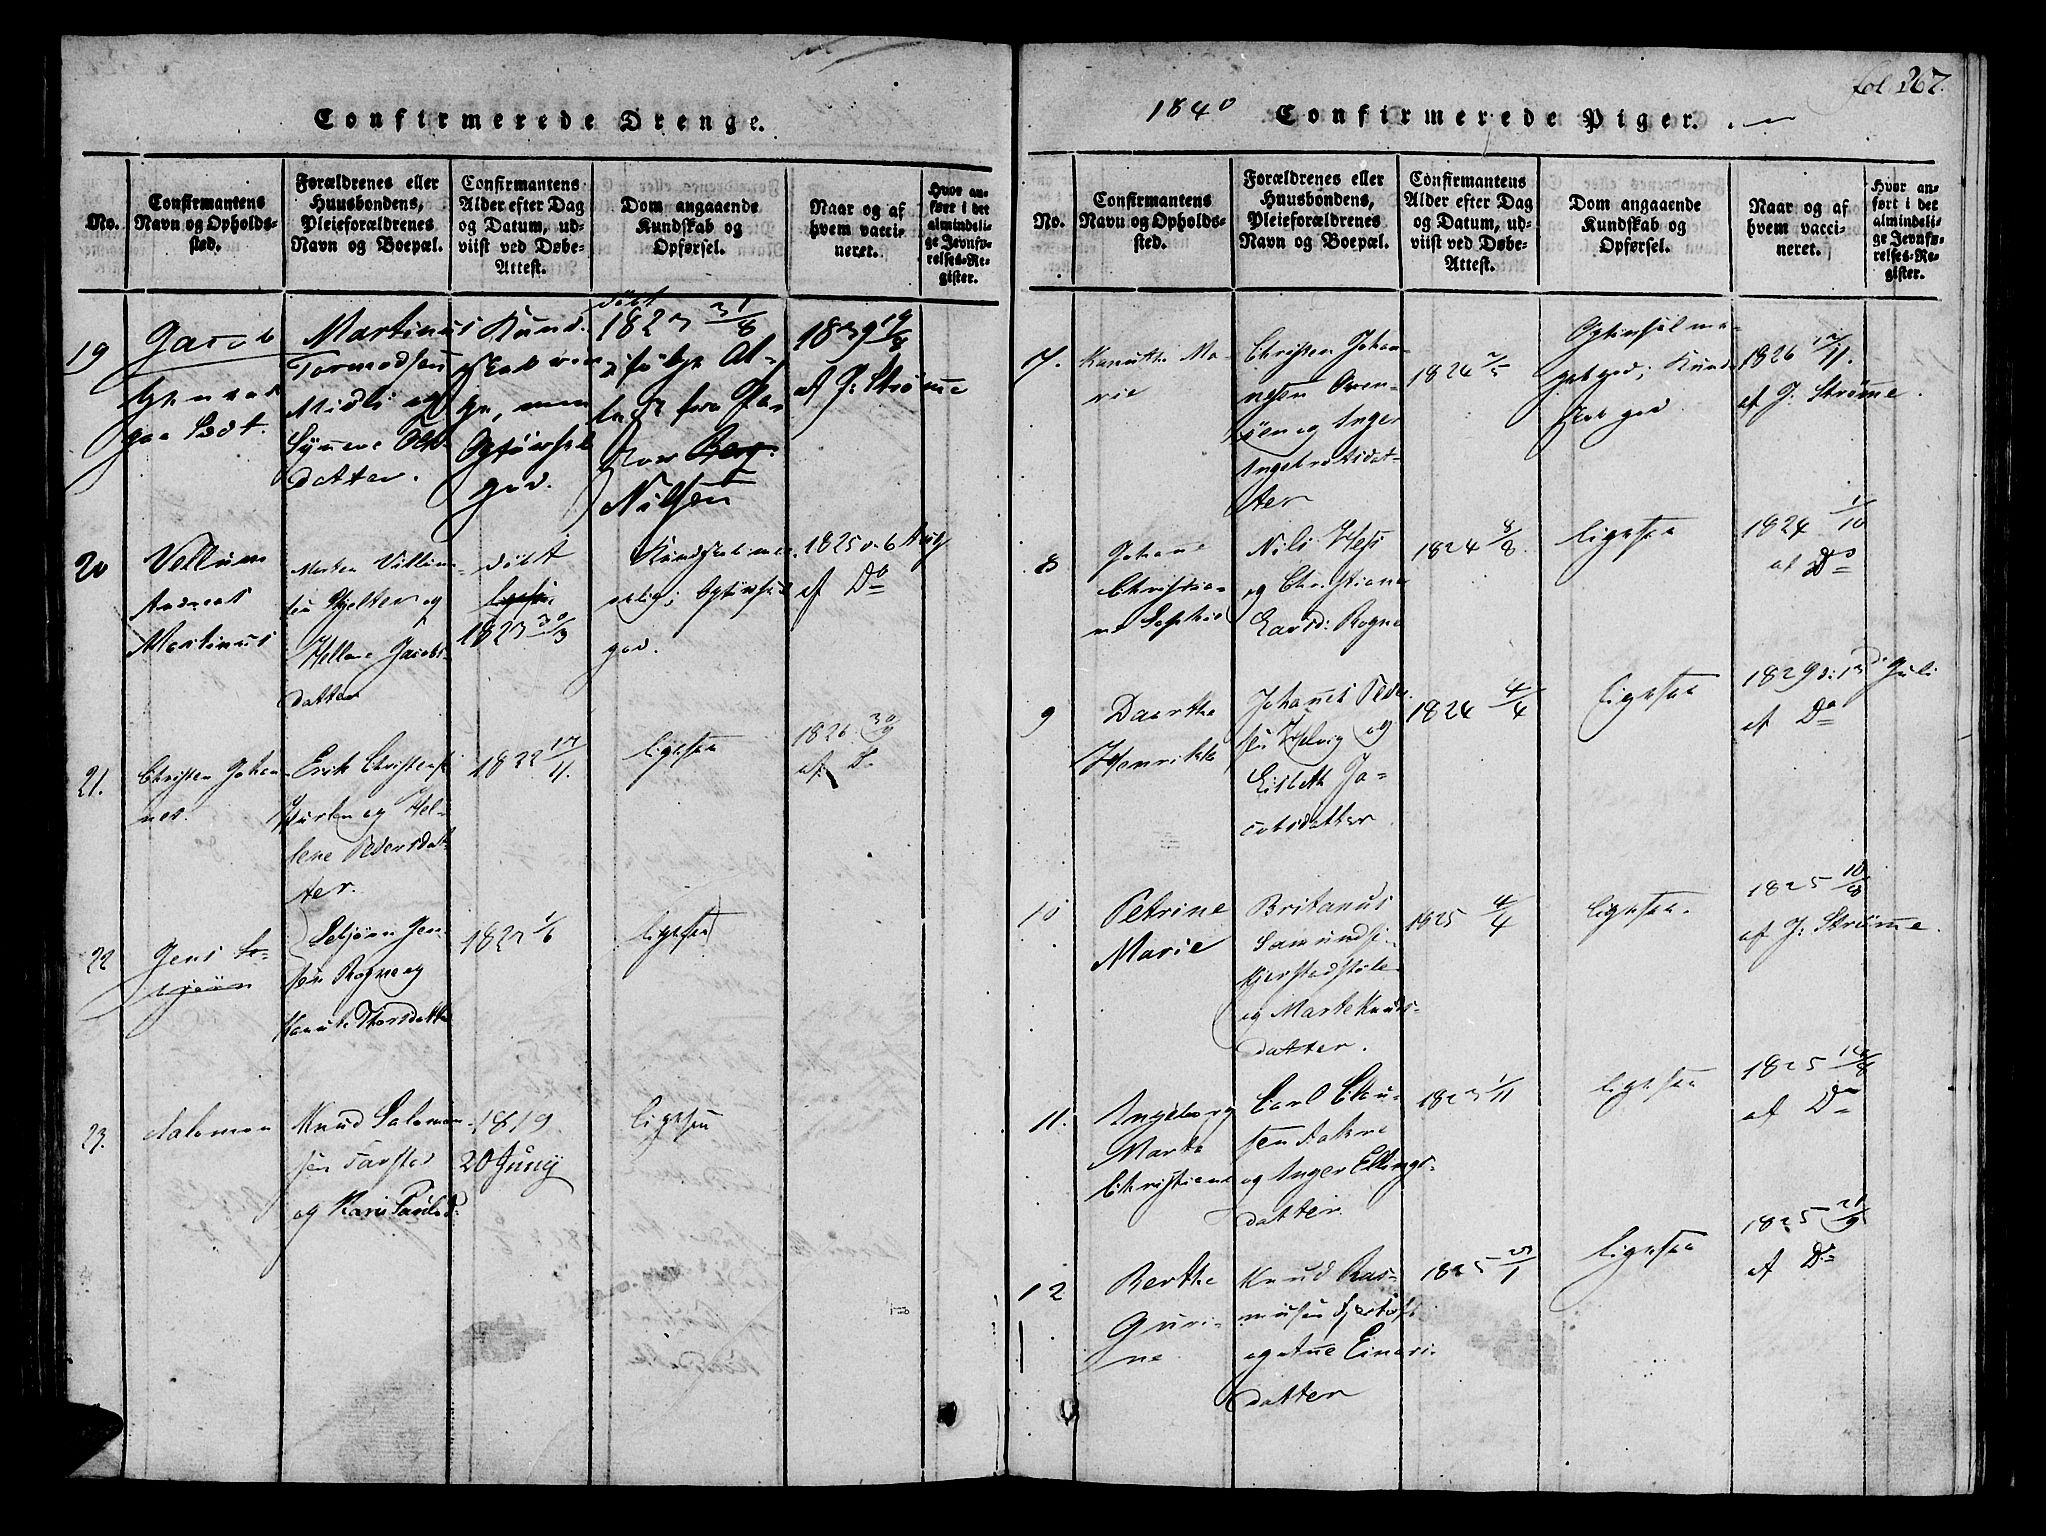 fol 267.
Confirmerede Drenge.
No.
Confirmantens
Navn og Opholds-
sted.
Forældrenes eller
Huusbondens,
Pleieforældrenes
Navn og Boepæl.
Confirmantens
Alder efter Dag
og Datum, ud-
viist ved Døbe-
Attest.
Dom angaaende
Kundskab og
Opførsel.
Naar og af
hvem vacci-
neret.
Hvor an-
ført i det
almindeli-
ge Jevnfø-
relses-Re-
gister.
19
Jacob
Martinus
Tormodsen
Midli og
Synneve
datter.
Kund-
skab
men
Opførsel
god.
døbt
1823 31/8
ifølge At-
test fra Pa-
stor
Nilsen
1839 19/8
af J: Strømme
20
Vellum
Andreas
Martinus
Morten Villum-
sen Hjelten og
Hellene Jacobs-
datter
døbt
1823 30/3
Kundskab
Opførsel
god.
1825 d. 6 Aug
af Do
21.
Christen Johan-
nes.
Erik Christens
og Hel-
lene Pedersdat-
ter.
1822 17/11.
ligesaa
1826 30/9
af D
22
Jens Se-
bjørn
Sebjørn Jen-
sen Rogne og
Thorsdatter
1823 1/6
ligesaa
23.
Salomon
Knud Salomon-
sen
og Kari Paulsd.
1819
20 Juny
ligesaa
1840 Confirmerede Piger.
No.
Confirmantens
Navn og Opholds-
sted.
Forældrenes eller
Huusbondens,
Pleieforældrenes
Navn og Boepæl.
Confirmantens
Alder efter Dag
og Datum, ud-
viist ved Døbe-
Attest.
Dom angaaende
Kundskab og
Opførsel.
Naar og af
hvem vacci-
neret.
Hvor an-
ført i det
almindeli-
ge Jevnfø-
relses-Re-
gister.
7.
Kanutte Ma-
rie
Christen Johan-
nesen
og Inger
Ingebrigtsdat-
ter
1824
Opførsel me-
get god; Kund-
skab god.
1826
af J: Strømme.
8
Johane
Christia-
ne Sophie
Nils Hess
og Christiane
Larsd: Rogne
1824 8/8.
ligesaa
1824 1/10
af Do
9
Daarthe
Henrikke
Johanes Peder-
sen Helvig og
Elsbeth Ja-
cobsdatter
1824 4/4
ligesaa
1829 d: 13de Juli
af Do
10
Petrine
Marie
Britanus
Samunds:
Kjerstadstøle
og Marte Knuds-
datter.
1825 4/4
ligesaa.
1825 10/8
af J: Strømme.
11.
Ingeborg
Marta
Christiane
Carl Clau-
sen
og Inger Ellings-
datter
1823 1/11
ligesaa
1825
af Do
12
Berthe
Guri-
ne
Knud Ras-
musen Fjørtoft
og Ane Einars-
datter
1825
ligesaa
1825 21/9
af Do